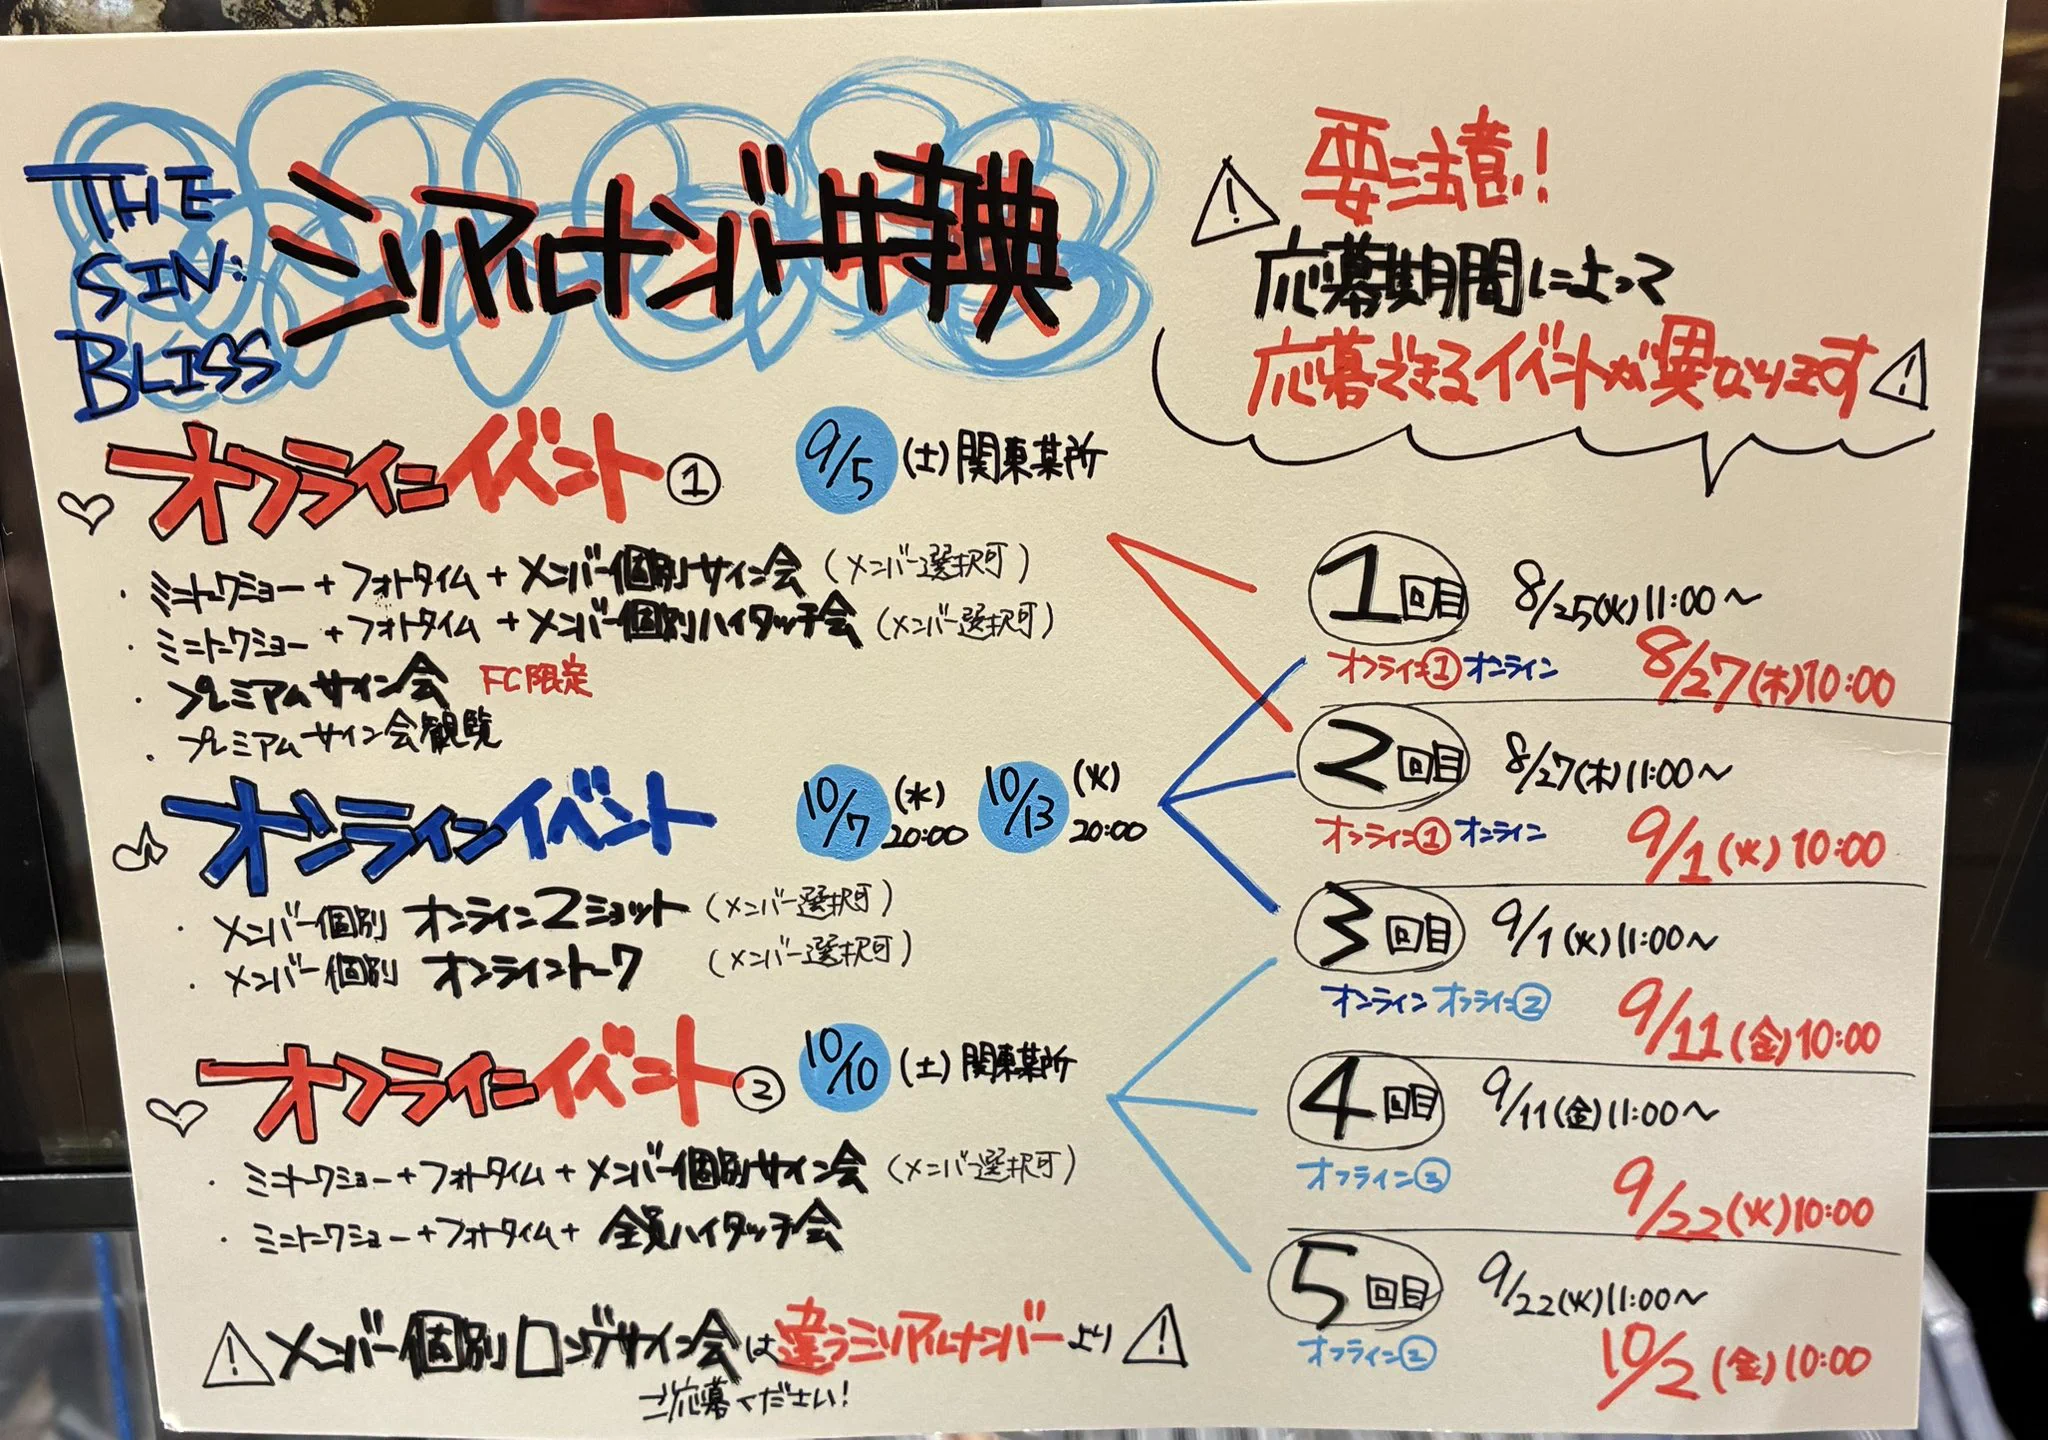 THE
SIN:
BLISS
シリアルナンバー特典
オフラインイベント① 9/5(土)関東某所
・ミニトークショー+フォトタイム+メンバー個別サイン会(メンバー選択可)
・ミニトークショー+フォトタイム+メンバー個別ハイタッチ会(メンバー選択可)
・プレミアムサイン会 FC限定
・プレミアムサイン会観覧
オンラインイベント 10/7(水)20:00 10/13(火)20:00
・メンバー個別 オンライン2ショット(メンバー選択可)
・メンバー個別 オンライントーク (メンバー選択可)
オフラインイベント② 10/10(土)関東某所
・ミニトークショー+フォトタイム+メンバー個別サイン会(メンバー選択可)
・ミニトークショー+フォトタイム+全員ハイタッチ会
⚠メンバー個別ロングサイン会は違うシリアルナンバーより⚠
ご応募ください!
⚠要注意!
応募期間によって
応募できるイベントが異なります⚠
1回目 8/25(火)11:00〜
オフライン①オンライン 8/27(木)10:00
2回目 8/27(木)11:00〜
オフライン①オンライン 9/1(火)10:00
3回目 9/1(火)11:00〜
オンライン オフライン② 9/11(金)10:00
4回目 9/11(金)11:00〜
オフライン② 9/22(火)10:00
5回目 9/22(火)11:00〜
オフライン② 10/2(金)10:00